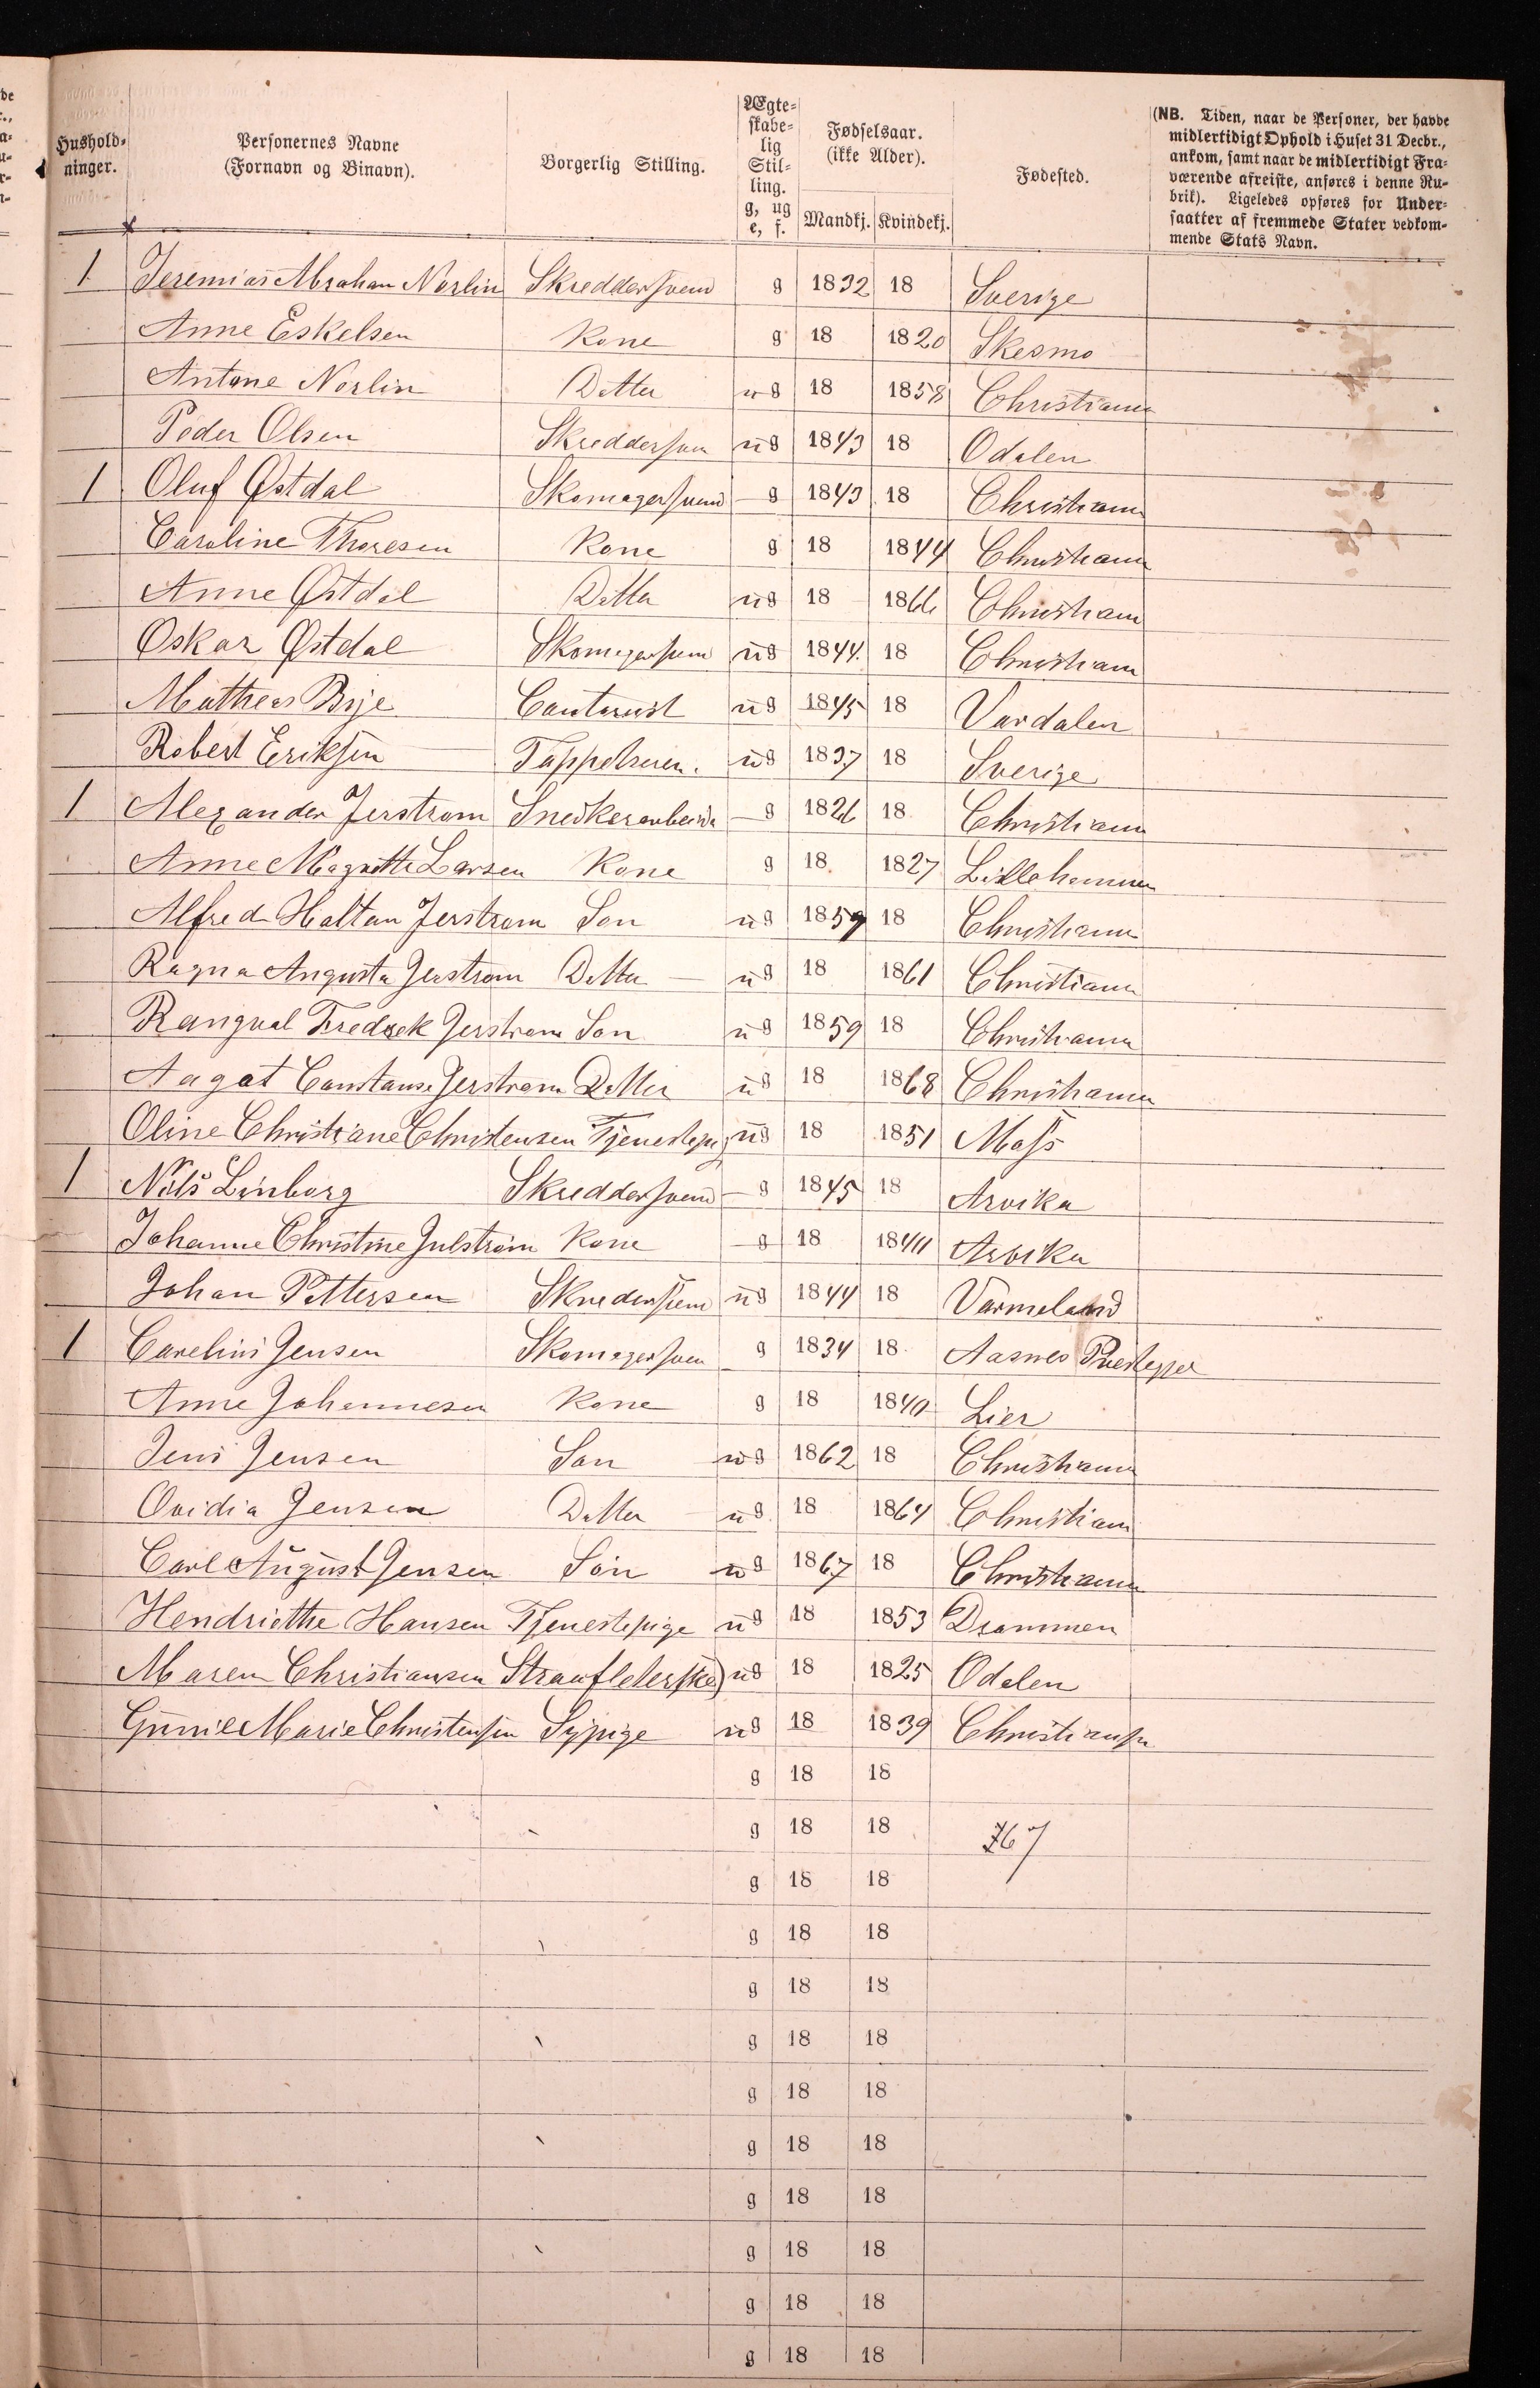 Hushold-
ninger.
Personernes Navne
(Fornavn og Binavn).
Borgerlig Stilling.
Ægte-
skabe-
lig
Stil-
ling.
g, ug
e, f.
Fødselsaar.
(ikke Alder).
Mandkj. Kvindekj.
Fødested.
(NB. Tiden, naar de Personer, der havde
midlertidigt Ophold i Huset 31 Decbr.,
ankom, samt naar de midlertidigt Fra-
værende afreiste, anføres i denne Ru-
brik). Ligeledes opføres for Under-
saatter af fremmede Stater vedkom-
mende Stats Navn.
1 Jeremias Abraham Norlin Skreddersvend g 1832 18 Sverige
Anne Eskelsen Kone g 18 1820 Skesmo
Antone Norlin Datter ug 18 1858 Christiania
Peder Olsen Skreddersven ug 1843 18 Odalen
1 Oluf Østdal Skomagersvend g 1843 18 Christiania
Caroline Thoresen Kone g 18 1844 Christiania
Anne Østdal Datter ug 18 1866 Christiania
Oskar Østdal Skomagersvend ug 1844. 18 Christiania
Mathes ug 1845 18 Værdalen
Robert Eriksen ug 1837 18 Sverige
1 Alexander Jerstrøm Snedkerarbeide g 1826 18 Christiania
Anne Magrethe Larsen Kone g 18 1827 Lillehammer
Alfred Haltan Jerstrøm Søn ug 1859 18 Christiania
Ragna Augusta Jerstrøm Datter ug 18 1861 Christiania
Rangval Fredrek Jerstrøm Søn ug 1859 18 Christiania
Aagot Constanse Jerstrøm Datter ug 18 1868 Christiania
Oline Christiane Christensen Tjenestepig ug 18 1851 Moss
1 Nils Linborg Skreddersvend g 1845 18 Arvika
Johanne Christine Julstrøm Kone g 18 Arvika
Johan Pettersen Skredersvend ug 1844 18 Värmeland
1 Carelius Jensen Skomagersven g 1834 18 Aasnes
Anne Johannesen Kone g 18 1840 Lier
Jens Jensen Søn ug 1862 18 Christiania
Ovidia Jensen Datter ug 18 1864 Christiania
Carl August Jensen Søn ug 1867 18 Christiania
Hendriethe Hansen Tjenestepige ug 18 1853 Drammen
Maren Christiansen ug 18 1825 Odalen
Gunnil Marie Christensen Sypige ug 18 1839
g 18 18
g 18 18 767
g 18 18
g 18 18
g 18 18
g 18 18
g 18 18
g 18 18
g 18 18
g 18 18
g 18 18
g 18 18